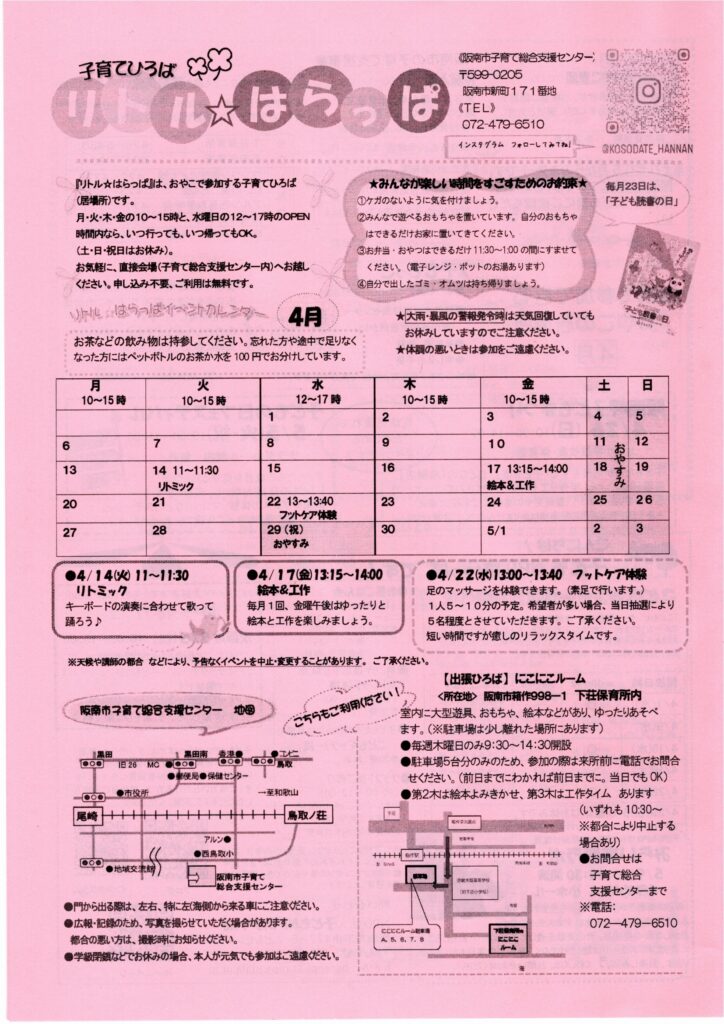 子育てひろば
リトル☆はらっぱ
(阪南市子育て総合支援センター)
〒599-0205
阪南市新町171番地
《TEL》
072-479-6510
インスタグラム フォローしてみてね!
@KOSODATE_HANNAN
『リトル☆はらっぱ』は、おやこで参加する子育てひろば
(居場所)です。
月・火・木・金の10~15時と、水曜日の12~17時のOPEN
時間内なら、いつ行っても、いつ帰ってもOK。
(土・日・祝日はお休み)。
お気軽に、直接会場(子育て総合支援センター内)へお越し
ください。申し込み不要、ご利用は無料です。
★みんなが楽しい時間をすごすためのお約束★
①ケガのないように気を付けましょう。
②みんなで遊べるおもちゃを置いています。自分のおもちゃ
はできるだけお家に置いてきてください。
③お弁当・おやつはできるだけ11:30~1:00の間にすませて
ください。(電子レンジ・ポットのお湯あります)
④自分で出したゴミ・オムツは持ち帰りましょう。
毎月23日は、
「子ども読書の日」
子ども読書の日
リトル はらっぱイベントカレンダー
4月
お茶などの飲み物は持参してください。忘れた方や途中で足りなく
なった方にはペットボトルのお茶か水を100円でお分けしています。
★大雨・暴風の警報発令時は天気回復していても
お休みしていますのでご注意ください。
★体調の悪いときは参加をご遠慮ください。
月 火 水 木 金 土 日
10~15時 10~15時 12~17時 10~15時 10~15時
1 2 3 4 5
6 7 8 9 10 11 12
おやすみ
13 14 11~11:30 15 16 17 13:15~14:00 18 19
リトミック 絵本&工作
20 21 22 13~13:40 23 24 25 26
フットケア体験
27 28 29(祝) 30 5/1 2 3
おやすみ
●4/14(火)11~11:30
リトミック
キーボードの演奏に合わせて歌って
踊ろう♪
●4/17(金)13:15~14:00
絵本&工作
毎月1回、金曜午後はゆったりと
絵本と工作を楽しみましょう。
●4/22(水)13:00~13:40 フットケア体験
足のマッサージを体験できます。(素足で行います。)
1人5~10分の予定。希望者が多い場合、当日抽選により
5名程度とさせていただきます。ご了承ください。
短い時間ですが癒しのリラックスタイムです。
※天候や講師の都合 などにより、予告なくイベントを中止・変更することがあります。ご了承ください。
阪南市子育て総合支援センター 地図
こちらもご利用ください!
黒田 黒田南 香港● ●コンビニ
旧26 MC 鳥取
●郵便局●保健センター
●市役所 →至和歌山
尾崎 鳥取ノ荘
アルン●
●西鳥取小
●地域交流館
阪南市子育て
総合支援センター
●門から出る際は、左右、特に左(海側)から来る車にご注意ください。
●広報・記録のため、写真を撮らせていただく場合があります。
都合の悪い方は、撮影時にお知らせください。
●学級閉鎖などでお休みの場合、本人が元気でも参加はご遠慮ください。
【出張ひろば】にこにこルーム
<所在地> 阪南市箱作998-1 下荘保育所内
室内に大型遊具、おもちゃ、絵本などがあり、ゆったりあそべ
ます。(※駐車場は少し離れた場所にあります)
●毎週木曜日のみ9:30~14:30開設
●駐車場5台分のみのため、参加の際は来所前に電話でお問合
せください。(前日までにわかれば前日までに。当日でもOK)
●第2木は絵本よみきかせ、第3木は工作タイム あります
(いずれも10:30~
※都合により中止する
場合あり)
●お問合せは
子育て総合
支援センターまで
※電話:
072―479-6510
箱作駅
駐車場
にこにこルーム駐車場
A、5、6、7、8
下荘保育所内
にこにこ
ルーム
海